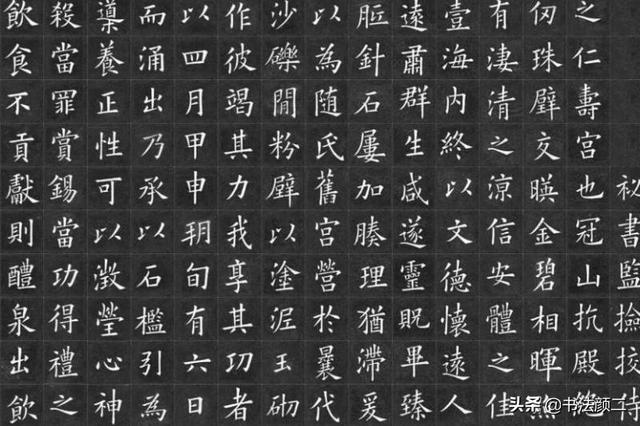 祕書監撿挍侍
之仁壽宮也冠山抗殿絶
仞珠壁交暎金碧相暉照
有淒清之涼信安體之佳
壹海內終以文德懷遠人
遠肅群生咸遂靈貺畢臻
胝針石屢加腠理猶滯爰
以為随氏舊宮營於曩代
沙礫閒粉壁以塗泥玉砌
作彼竭其力我享其功者
以四月甲申朔旬有六日
而涌出乃承以石檻引為
導養正性可以澂瑩心神
殺當罪賞錫當功得禮之
飲食不貢獻則醴泉出飲
头条 @书法颜二